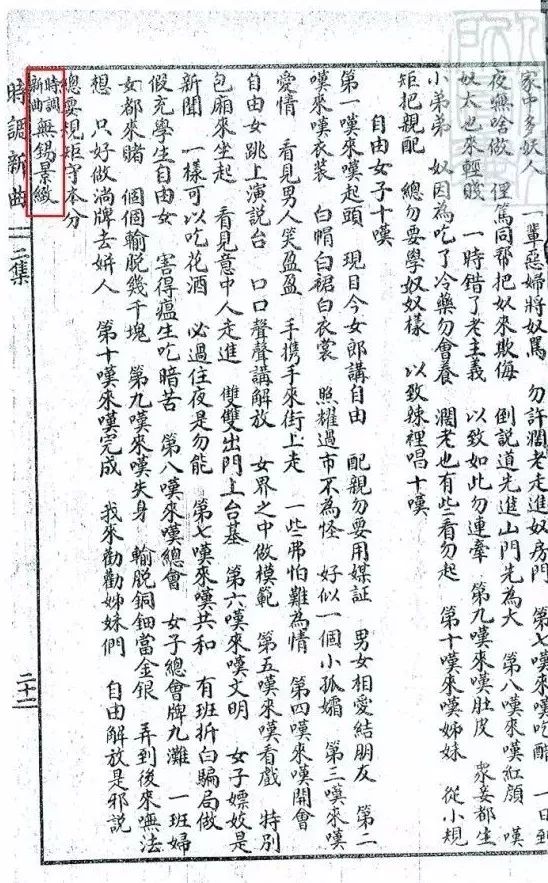 家中多妖人　一輩惡婦將奴罵　勿許濶老走進奴房門　第七嘆來嘆吃醋　一日到
夜無啥做　俚篤同帮把奴來欺侮　倒說道先進山門先為大　第八嘆來嘆紅顔　嘆
奴太也來輕賤　一時錯了老主義　以致如此勿連牽　第九嘆來嘆肚皮　眾妾都生
小弟弟　奴因為吃了冷藥勿會養　濶老也有些看勿起　第十嘆來嘆姊妹　從小規
矩把親配　總勿要學奴奴樣　以致辣裡唱十嘆
自由女子十嘆
第一嘆來嘆起頭　現日今女郎講自由　配親勿要用媒証　男女相愛結朋友　第二
嘆來嘆衣裝　白帽白裙白衣裳　照耀過市不為怪　好似一個小孤孀　第三嘆來嘆
愛情　看見男人笑盈盈　手携手來街上走　一些弗怕難為情　第四嘆來嘆開會
自由女跳上演說台　口口聲聲講解放　女界之中做模範　第五嘆來嘆看戲　特別
包廂來坐起　看見意中人走進　雙雙出門上台基　第六嘆來嘆文明　女子嫖妓是
新聞　一樣可以吃花酒　必過住夜是勿能　第七嘆來嘆共和　有班折白騙局做
假充學生自由女　害得瘟生吃暗苦　第八嘆來嘆總會　女子總會牌九灘　一班婦
女都來賭　個個輸脫幾千塊　第九嘆來嘆失身　輸脫銅鈿當金銀　弄到後來嘸法
想　只好做淌牌去姘人　第十嘆來嘆完成　我來勸勸姊妹們　自由解放是邪說
總要規矩守本分
時調新曲　無錫景緻
時調新曲　二集　二十二